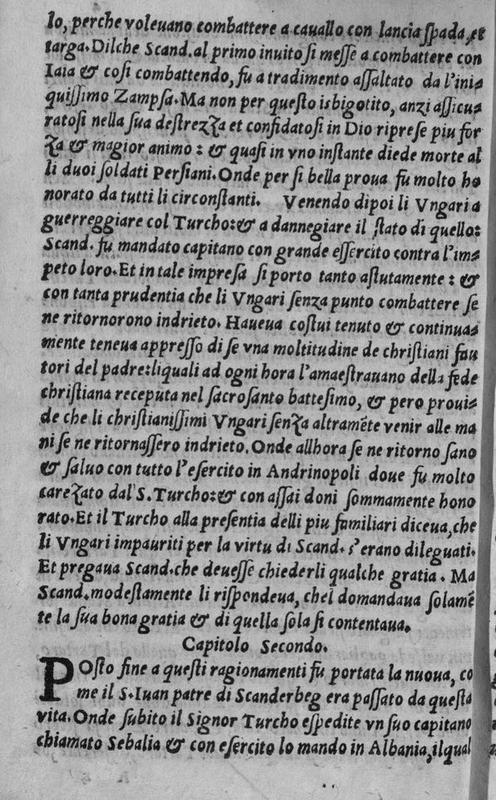 lo, perche voleuano combattere a cauallo con lancia ſpada, et
targa. Dilche Scand. al primo inuito ſi meſſe a combattere con
Iaia & coſi combattendo, fu a tradimento aſſaltato da l'ini-
quiſſimo Zampſa. Ma non per queſto isbigotito, anzi aſſicu-
ratoſi nella ſua deſtrezza et confidatoſi in Dio ripreſe piu for
za & magior animo: & quaſi in vno inſtante diede morte al
li duoi ſoldati Perſiani. Onde per ſi bella proua fu molto ho
norato da tutti li circonſtanti. Venendo dipoi li Vngari a
guerreggiare col Turcho: & a dannegiare il ſtato di quello:
Scand. fu mandato capitano con grande eſſercito contra l'im-
peto loro. Et in tale impreſa ſi porto tanto aſtutamente: &
con tanta prudentia che li Vngari ſenza punto combattere ſe
ne ritornorono indrieto. Haueua coſtui tenuto & continua-
mente teneua appreſſo di ſe vna moltitudine de chriſtiani fau
tori del padre: liquali ad ogni hora l'amaeſtrauano della fede
chriſtiana receputa nel ſacroſanto batteſimo, & pero proui-
de che li chriſtianiſſimi Vngari ſenza altramēte venir alle ma
ni ſe ne ritornaſſero indrieto. Onde allhora ſe ne ritorno ſano
& ſaluo con tutto l'eſercito in Andrinopoli doue fu molto
carezato dal S. Turcho: & con aſſai doni ſommamente hono
rato. Et il Turcho alla preſentia delli piu familiari diceua, che
li Vngari impauriti per la virtu di Scand. s'erano dileguati.
Et pregaua Scand. che deueſſe chiederli qualche gratia. Ma
Scand. modeſtamente li riſpondeua, chel domandaua ſolamē
te la ſua bona gratia & di quella ſola ſi contentaua.
Capitolo Secondo.
POſto fine a queſti ragionamenti fu portata la nuoua, co
me il S. Iuan patre di Scanderbeg era paſſato da queſta
vita. Onde ſubito il Signor Turcho eſpedite vn ſuo capitano
chiamato Sebalia & con eſercito lo mando in Albania, ilqual